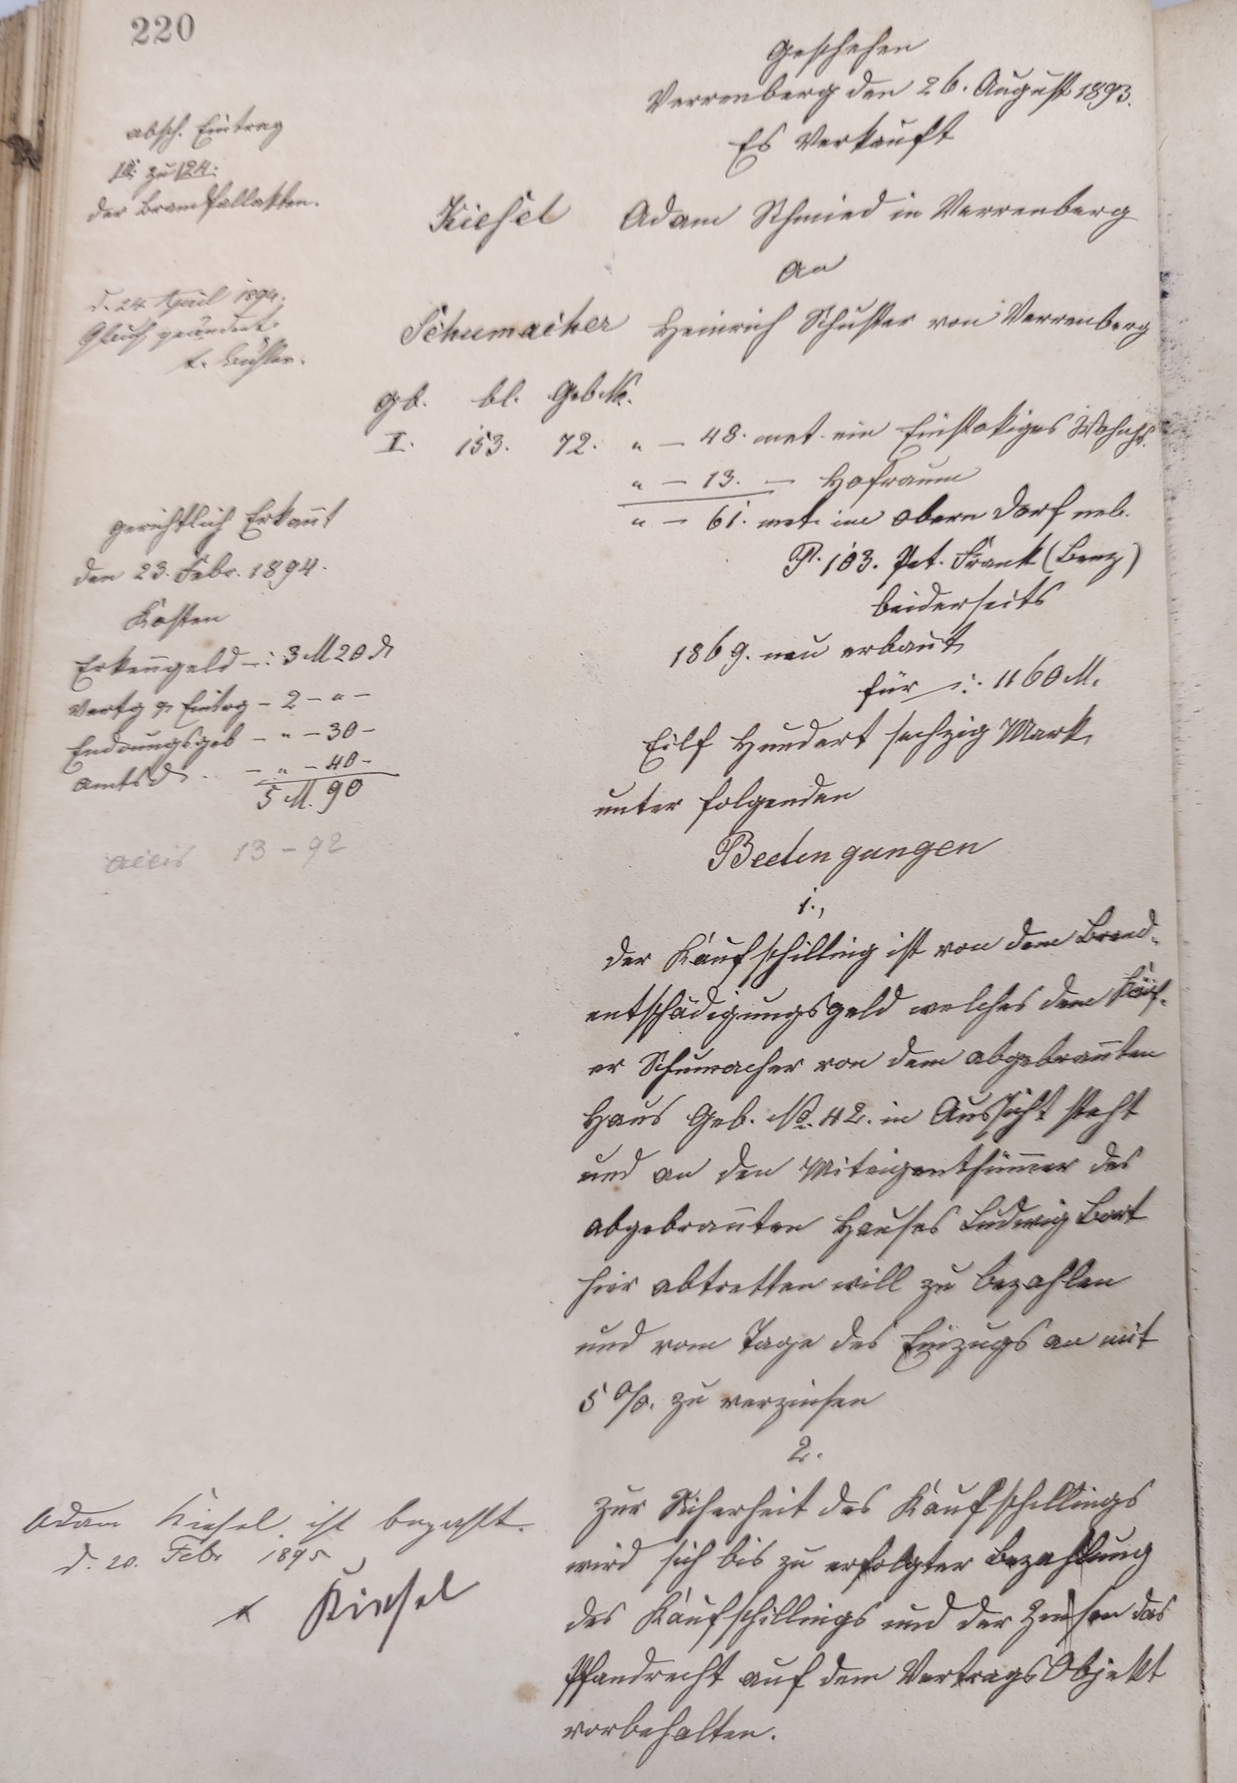 220
Geschehen
Verrenberg den 26. August 1893.
Es Verkauft
absch. Eintrag
zu 124.
der Brandfallakten.
Kiesel Adam Schmied in Verrenberg
an
d. 24. April 1894.
geändert
Schumacher Heinrich Schuster von Verrenberg
gb. bl. Geb.No.
I. 153. 72. " – 48. met. ein Einstokiges Wohnhs.
" – 13. – Hofraum
" – 61. met. im obern Dorf neb.
P. 103. Pet. Frank (Benz)
beiderseits
1869. neu erbaut
für –:· 1160 M.
Eilf Hundert sechzig Mark,
unter folgenden
gerichtlich Erkannt
den 23. Febr. 1894.
Kosten
Erkenngeld –: 3 M 20 d
Vertg & Eintrg – 2 – " –
– " – 30 –
Amtsd. – " – 40 –
5 M. 90
Accis 13 – 92
Bedingungen
1.,
der Kaufschilling ist von dem Brand-
entschädigungsgeld welches dem Käuf-
er Schumacher von dem abgebrannten
Haus Geb. No. 42. in Aussicht steht
und an den Miteigenthümmer des
abgebrannten Hauses Ludwig Bort
hier abtretten will zu bezahlen
und vom Tage des Einzugs an mit
5 %. zu verzinsen
2.
zur Sicherheit des Kaufschillings
wird sich bis zu erfolgter Bezahlung
des Kaufschillings und der Zinsen das
Pfandrecht auf dem Vertrags Objekt
vorbehalten.
Adam Kiesel ist bezahlt.
d. 20. Febr 1895
x Kiesel